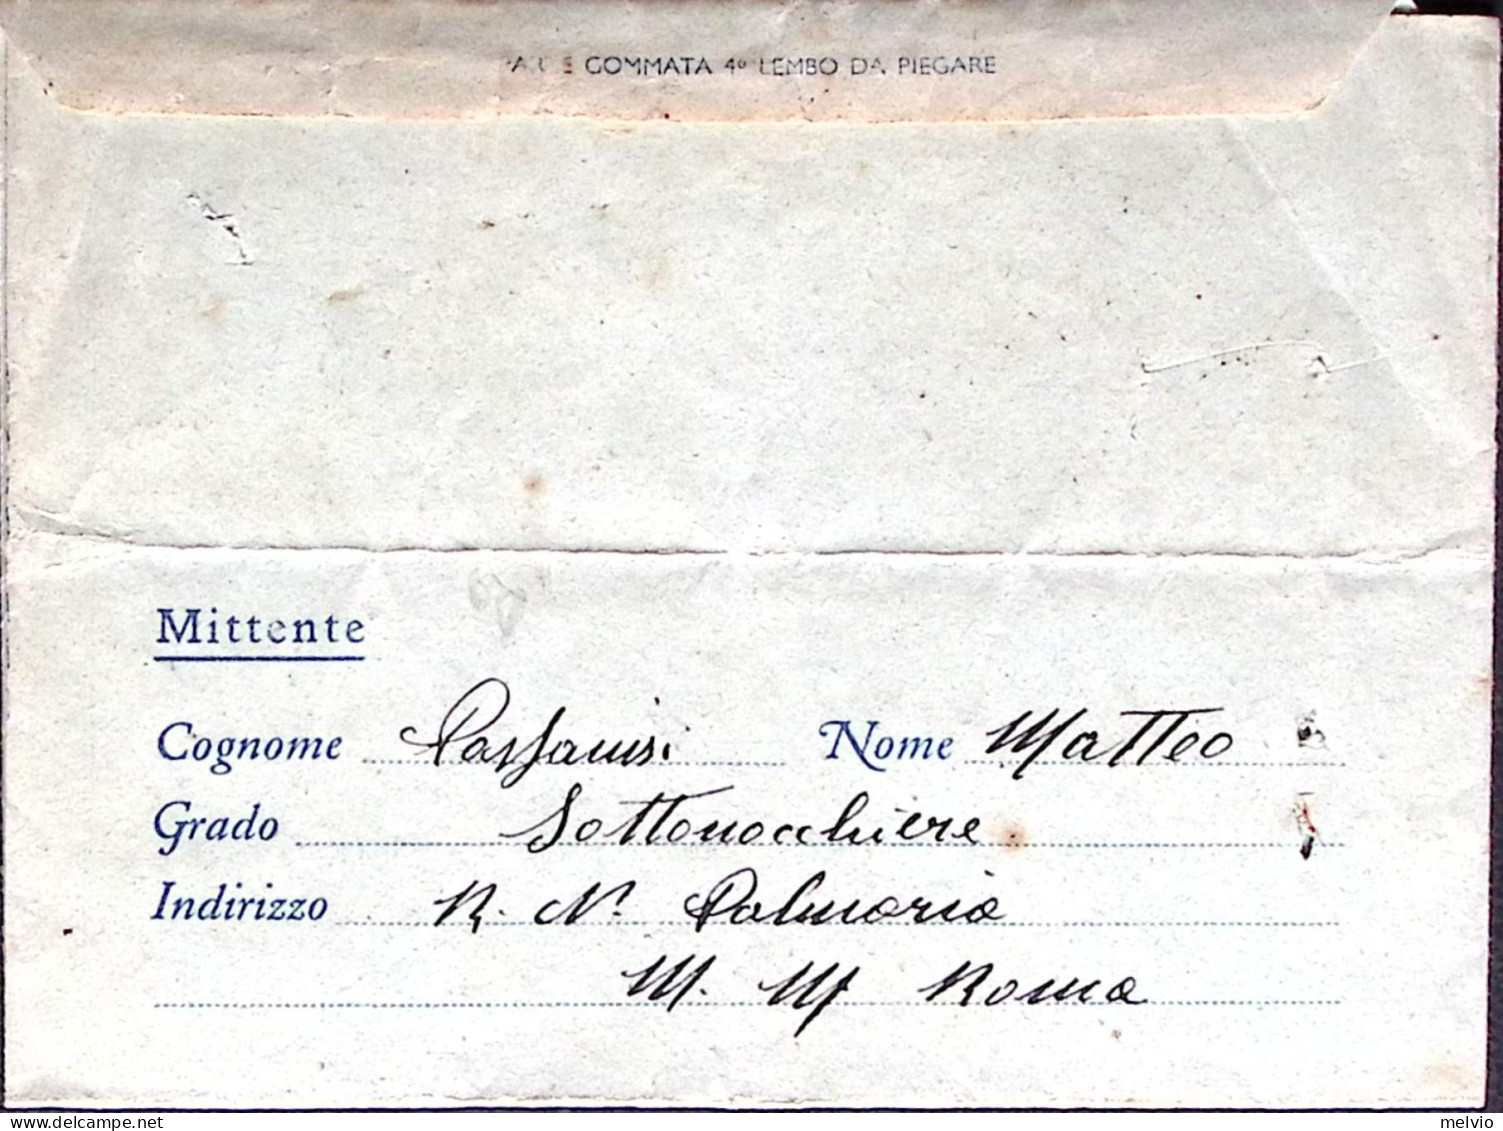 GOMMATA 4º LEMBO DA PIEGARE
Mittente
Cognome Passanisi Nome Matteo
Grado Sottonocchiere
Indirizzo R. N. Palmaria
M. M. Roma
melvio